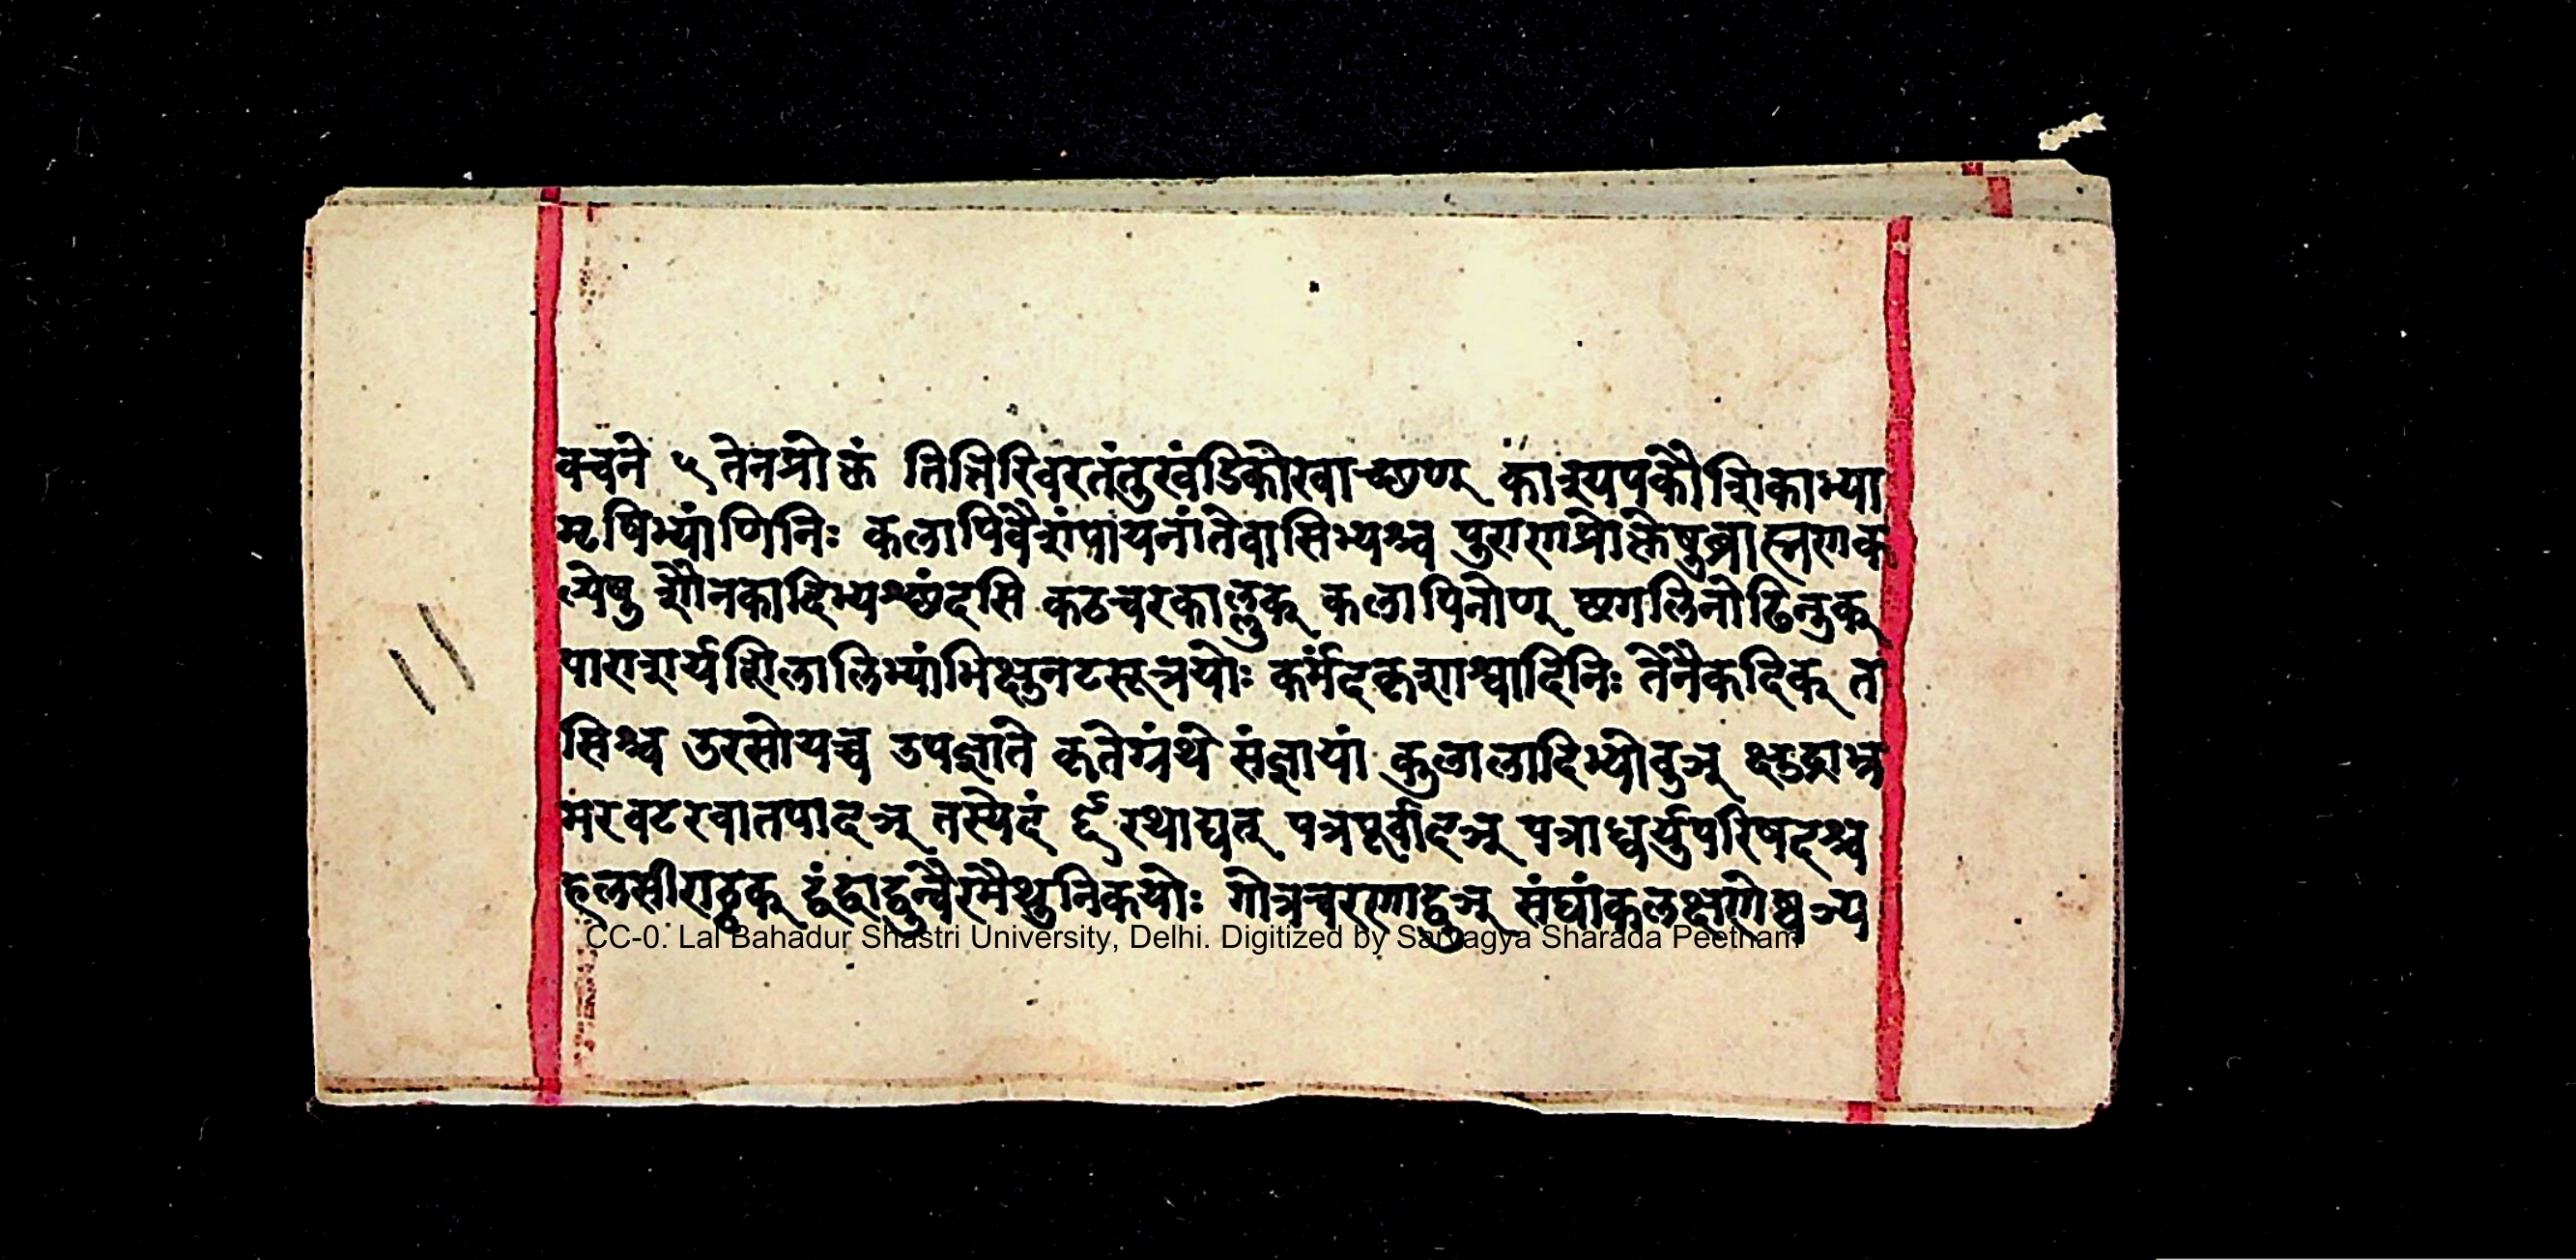 क्वचने ५ तेनप्रोक्तं तित्तिरिवरतंतुखंडिकोखाच्छण् काश्यपकौशिकाभ्या
मृषिभ्यांणिनिः कलापिवैशंपायनांतेवासिभ्यश्च पुराणप्रोक्तेषुब्राह्मणक
ल्पेषु शौनकादिभ्यश्छंदसि कठचरकाल्लुक् कलापिनोण् छगलिनोढिनुक्
पाराशर्यशिलालिभ्यांभिक्षुनटसूत्रयोः कर्मंदकृशाश्वादिनिः तेनैकदिक् त
सिश्च उरसोयच्च उपज्ञाते कृतेग्रंथे संज्ञायां कुलालादिभ्योवुञ् क्षुद्राभ्र
मरवटरवातपादञ् तस्येदं ६ रथाद्यत् पत्रपूर्वादञ् पत्राध्वर्युपरिषदश्च
हलसीराठ्ठक् द्वंद्वाद्वुन्वैरमैथुनिकयोः गोत्रचरणाद्वुञ् संघांकलक्षणेष्वञ्य
CC-0. Lal Bahadur Shastri University, Delhi. Digitized by Sarvagya Sharada Peetham